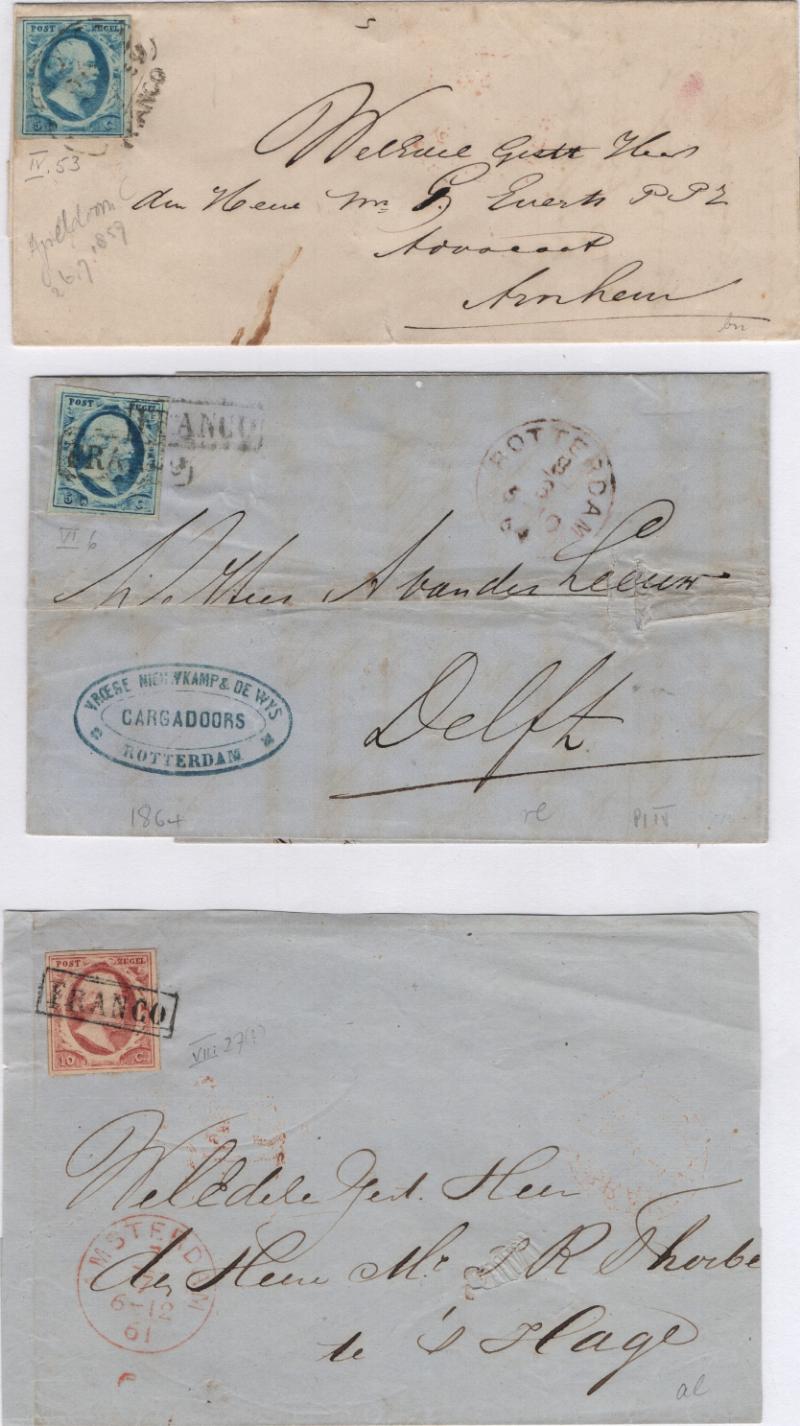 POST ZEGEL
5 C
FRANCO
IV. 53
Apeldoorn
26.7.1859
WelEdel Gestr Heer
den Heere Mr. G. Everts PPz
Advocaat
Arnhem
bn
POST ZEGEL
5 C
FRANCO
FRANCO
ROTTERDAM
VI 6
A van der Leeuw
Delft
VROEGE NIEUWKAMP & DE WYS
CARGADOORS
ROTTERDAM
1864
Pl IV
POST ZEGEL
10 C.
FRANCO
VIII 27(1)
WelEdele Gest. Heer
den Heere Mr. J R Thorbe
te 's Hage
AMSTERDAM
6-12
61
al